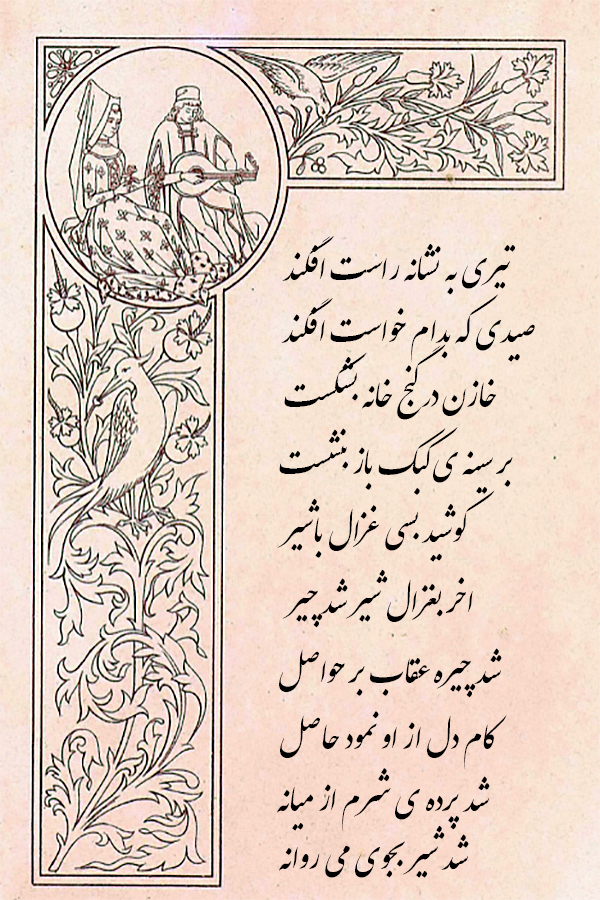 تیری به نشانه راست افکند
صیدی که بدام خواست افکند
خازن در گنج خانه بشکست
بر سینه ی کبک باز بنشست
کوشید بسی غزال باشیر
اخر بغزال شیر شد چیر
شد چیره عقاب بر حواصل
کام دل از او نمود حاصل
شد پرده ی شرم از میانه
شد شیر بجوی می روانه